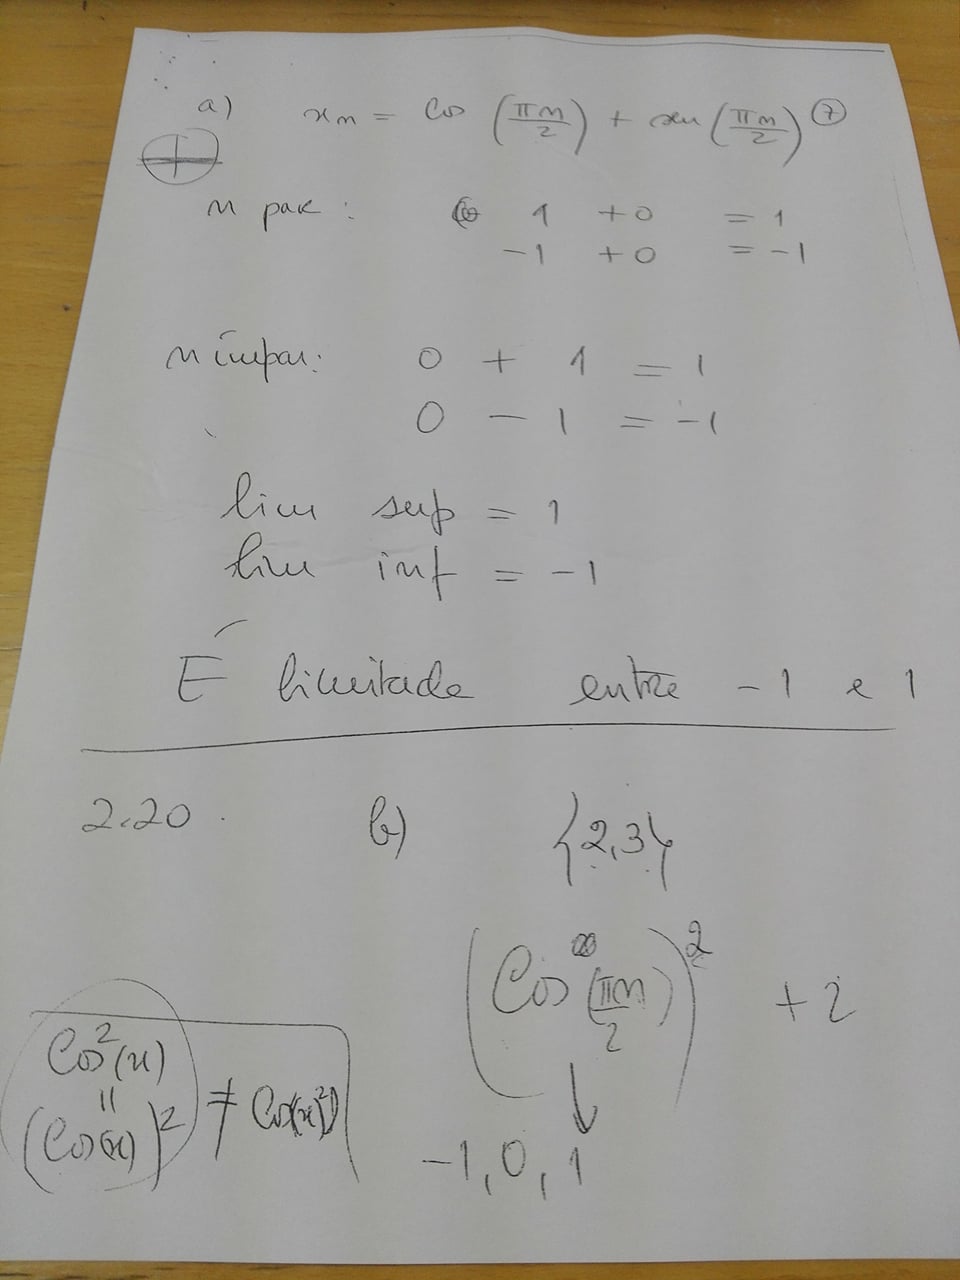 a) xn = Cos (πn/2) + sen (πn/2) 7
n par : 1 + 0 = 1
-1 + 0 = -1
n ímpar: 0 + 1 = 1
0 - 1 = -1
lim sup = 1
lim inf = -1
É limitada entre -1 e 1
2.20. b) {2,3}
(Cos (πn/2))² + 2
-1, 0, 1
Cos²(x)
=
(Cos(x))² ≠ Cos(x²)